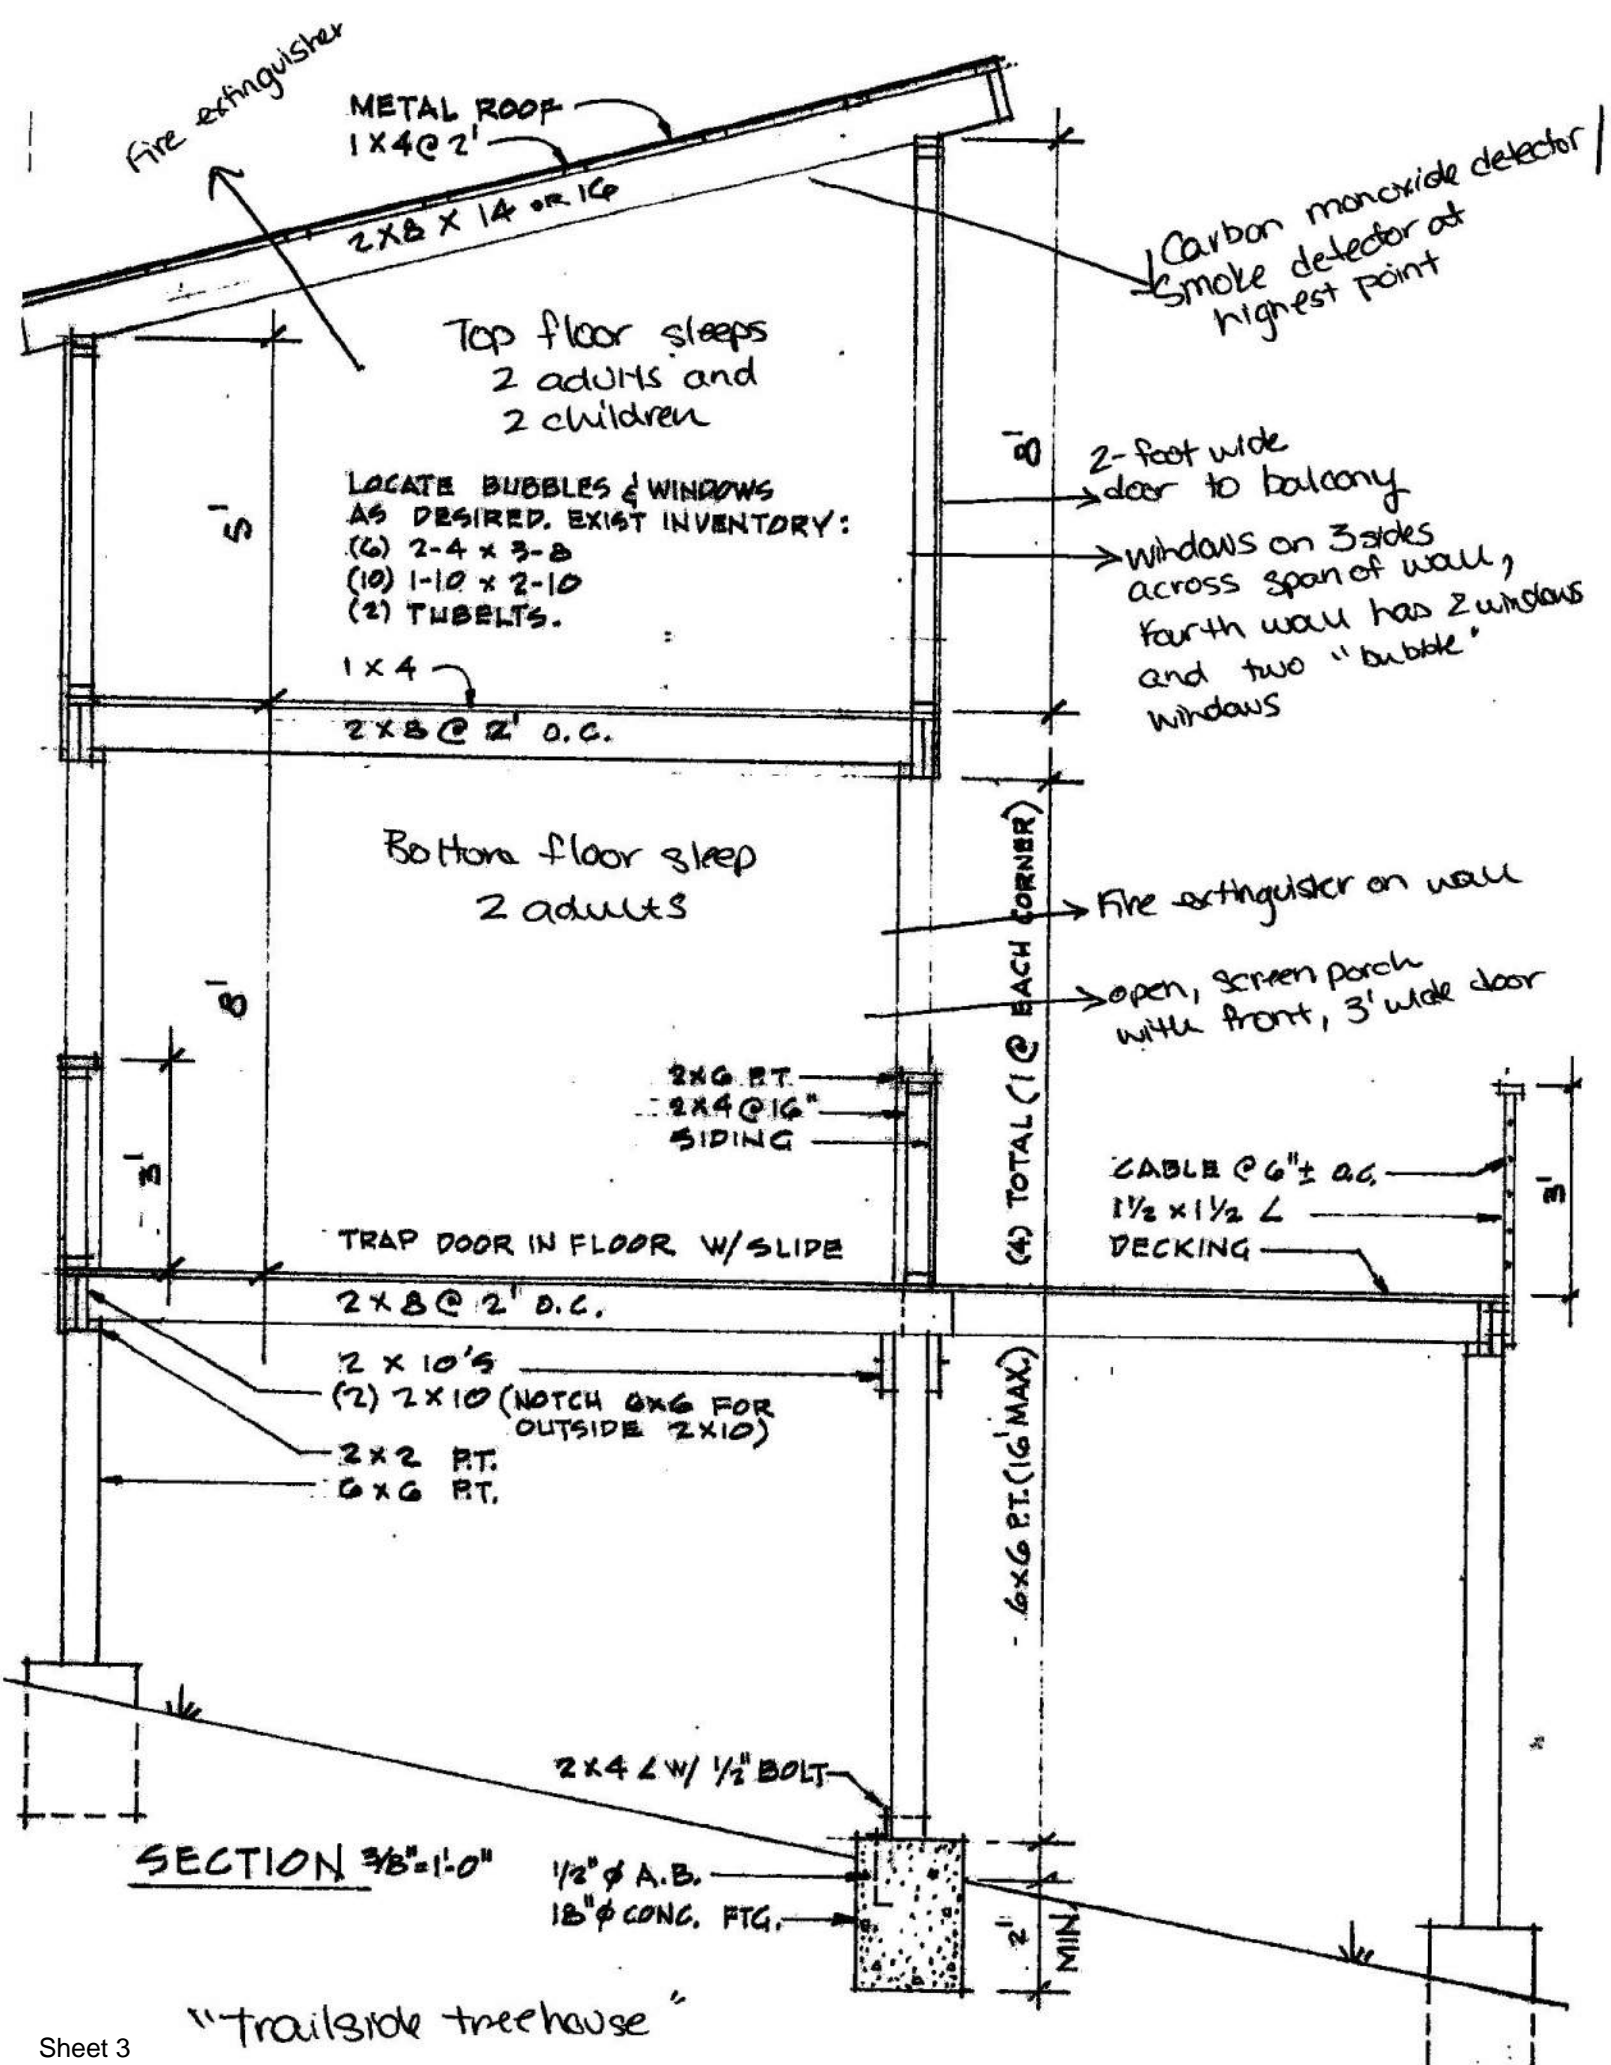 Fire extinguisher
METAL ROOF
1 X 4 @ 2'
2 X 8 X 14 OR 16
Carbon monoxide detector
Smoke detector at
highest point
Top floor sleeps
2 adults and
2 children
8'
2-foot wide
door to balcony
5'
LOCATE BUBBLES & WINDOWS
AS DESIRED. EXIST INVENTORY:
(6) 2-4 x 3-8
(10) 1-10 x 2-10
(2) TUBELTS.
windows on 3 sides
across span of wall,
Fourth wall has 2 windows
and two "bubble"
windows
1 X 4
2 X 8 @ 2' O.C.
Bottom floor sleep
2 adults
Fire extinguister on wall
8'
open, screen porch
with front, 3' wide door
2X6 P.T.
2X4 @ 16"
SIDING
3'
CABLE @ 6"± O.C.
1 1/2 x 1 1/2 ∠
DECKING
3'
TRAP DOOR IN FLOOR W/ SLIDE
2 X 8 @ 2' O.C.
6X6 P.T. (16' MAX.) (4) TOTAL (1 @ EACH CORNER)
2 X 10'S
(2) 2X10 (NOTCH 6X6 FOR
OUTSIDE 2X10)
2 X 2 P.T.
6 X 6 P.T.
2X4 ∠ W/ 1/2" BOLT
SECTION 3/8"=1'-0"
1/2" ϕ A.B.
18" ϕ CONC. FTG.
2' MIN.
"trailside treehouse"
Sheet 3